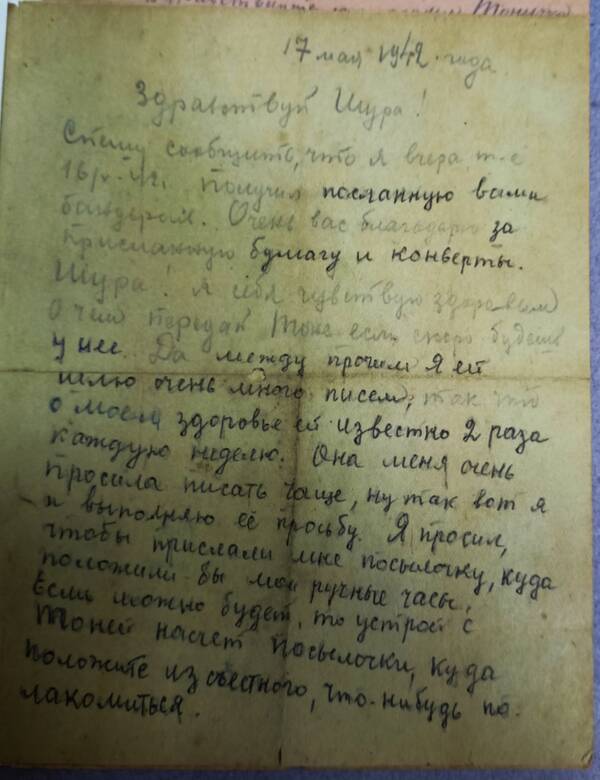 Тоничка
17 мая 1942 года
Здравствуй Шура!
Спешу сообщить, что я вчера т-е
16/V-42г. получил посланную вами
бандероль. Очень вас благодарю за
присланную бумагу и конверты.
Шура! Я себя чувствую здоровым
о чем передай Тоне если скоро будешь
у нее. Да между прочим я ей
шлю очень много писем, так что
о моем здоровье ей известно 2 раза
каждую неделю. Она меня очень
просила писать чаще, ну так вот я
и выполняю её просьбу. Я просил,
чтобы прислали мне посылочку, куда
положили бы мои ручные часы.
Если можно будет, то устрой с
Тоней насчет посылочки, куда
положите из съестного, что-нибудь по-
лакомиться.